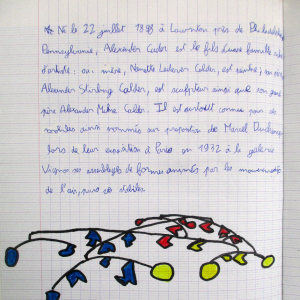 * Né le 22 juillet 1898 à Lawnton près de Philadelphie
Pennsylvanie, Alexander Calder est le fils d'une famille
d'artiste : sa mère, Nanette Lederer Calder, est peintre ; son père
Alexander Stirling Calder, est sculpteur ainsi que son grand
père Alexander Milne Calder. Il est surtout connu pour ses
mobiles ainsi nommés sur proposition de Marcel Duchamp
lors de leur exposition à Paris en 1932 à la galerie
Vignon ses assemblages de formes animés par les mouvements
de l'air, puis ses stabiles.